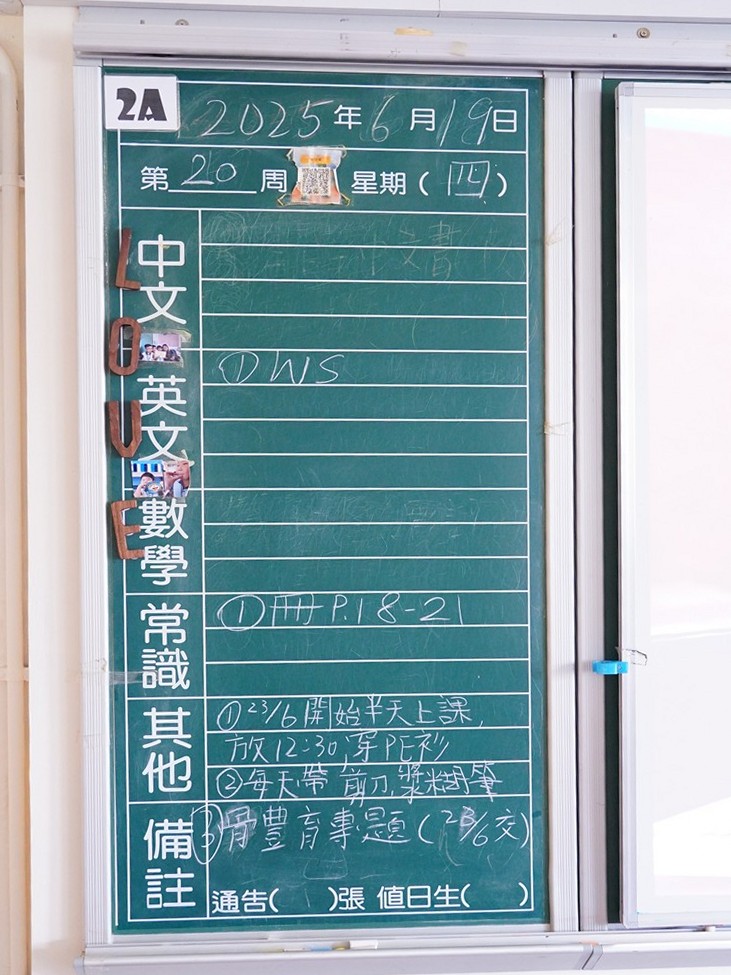 2A
2025年6月19日
第20周 星期(四)
LOVE
中文
英文
①WS
數學
常識
①冊P.18-21
其他
①23/6開始半天上課,
放12:30,穿PE衫
②每天帶 剪刀,漿糊筆
備註
③體育專題(23/6交)
通告( )張 值日生( )